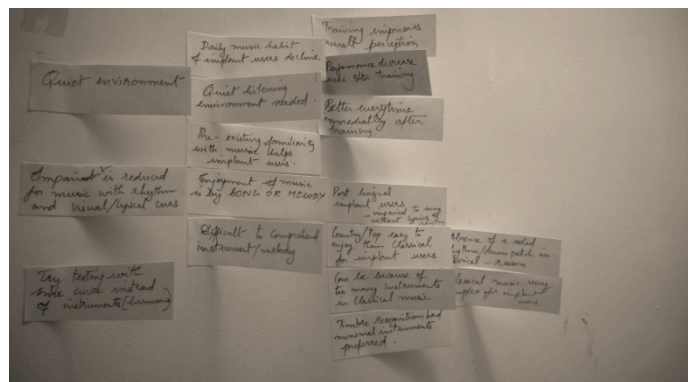 Quiet environment
Impairment is reduced
for music with rhythm
and visual/lyrical cues
Try testing with
sine wave instead
of instruments (harmonic)
Daily music habit
of implant users decline
Quiet listening
environment needed.
Pre-existing familiarity
with music helps
implant users.
Enjoyment of music
is by SONG OR MELODY
Difficult to comprehend
instrument/melody
Training improves
result perception
Performance decrease
weeks after training
Better everytime
immediately after
training
Post lingual
implant users
- impaired to song
without lyrics
Country/Pop easy to
enjoy than Classical
for implant users
Can be because of
too many instruments
in Classical music
Timbre recognition bad
minimal instruments
preferred.
Absence of a solid
rhythm/drum patch in
classical - reason
Classical music very
complex for implant
users